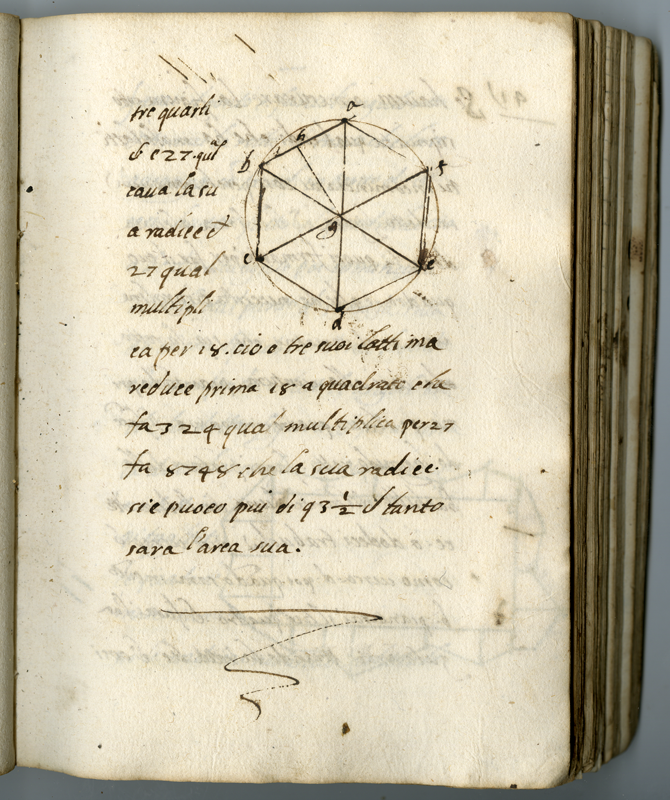 tre quarti
è 27 qual
cava la su
a radice
27 qual
multipli
ca per 18. cio o tre suoi latti ma
reduce prima 18 a quadrato che
fa 324 qual multiplica per 27
fa 8748 che la sua radice
si e puoco piu di 93 1/2 tanto
sara l'area sua.
a
h
b
f
g
c
e
d